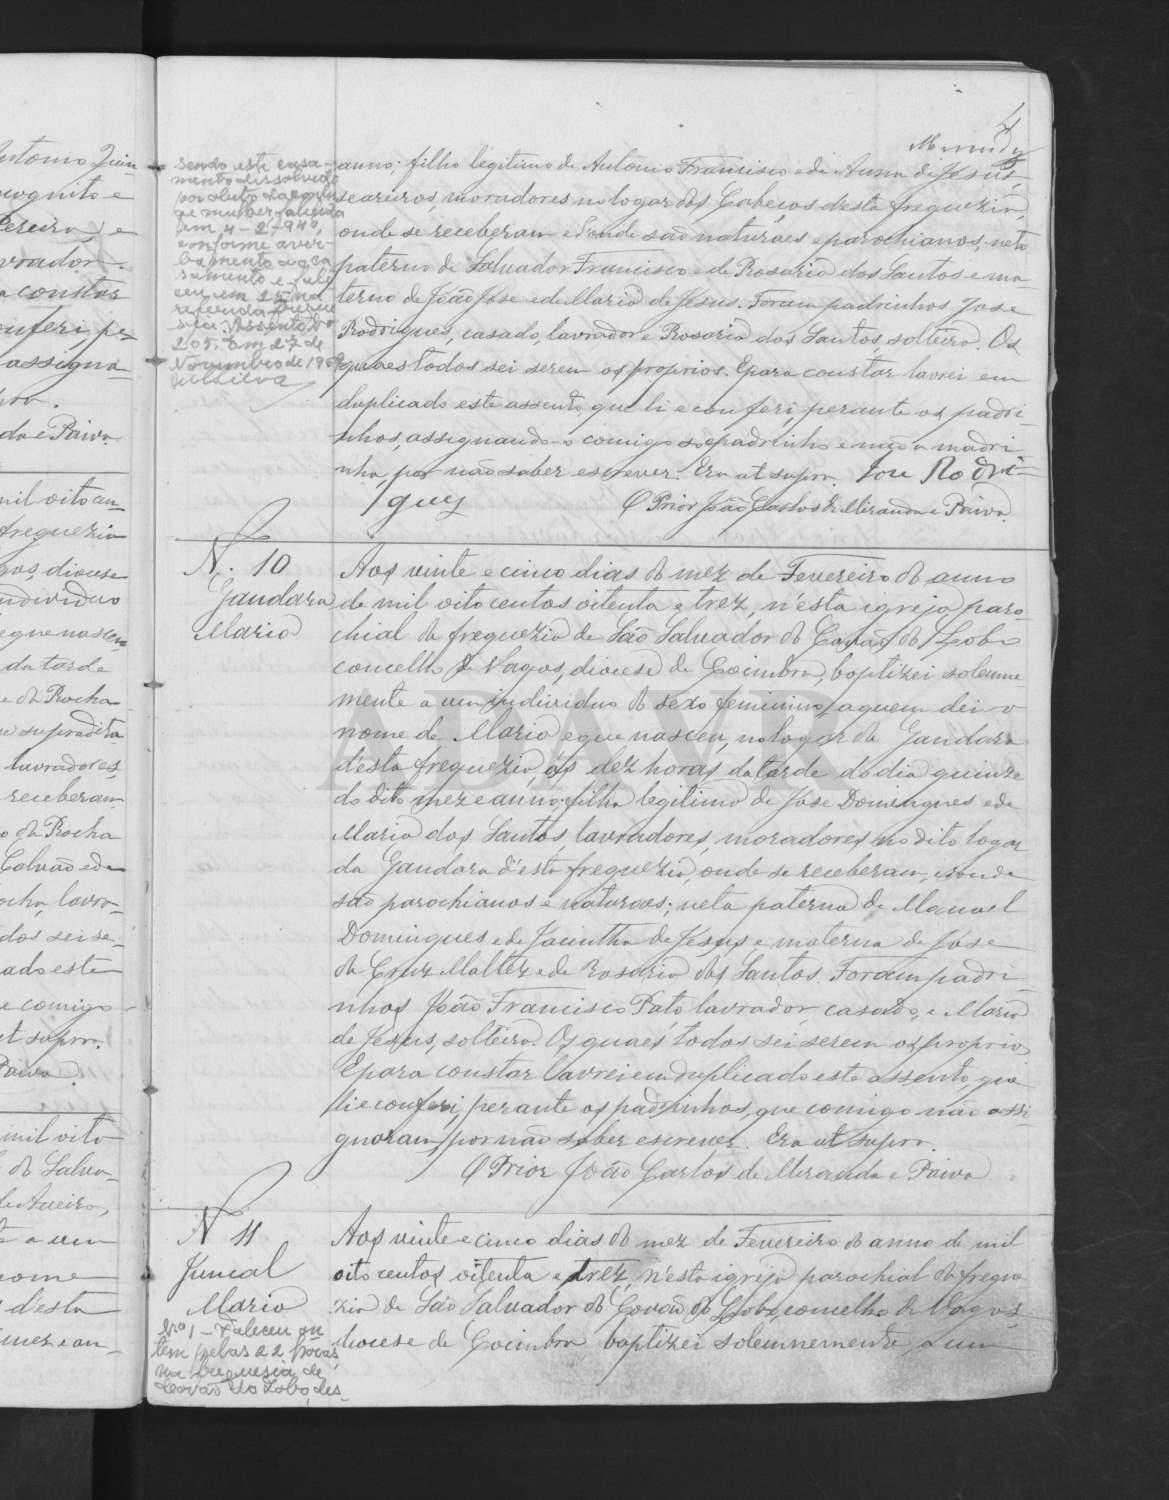 4
sendo este casa-
mento dissolvido
por obito da conju-
ge mulher falecida
em 4-2-940,
conforme aver-
bamento ao ca
samento e fale
ceu em 25 na
referida fregue
sia. Assento No
205. Em 27 de
Novembro de 19
anno; filho legitimo de Antonio Francisco e de Anna de Jesus,
seareiros, moradores no logar dos Cabeços d'esta freguezia,
onde se receberam e d'onde são naturaes e parochianos, neto
paterno de Salvador Francisco e de Rosaria dos Santos e ma-
terno de João Jose e de Maria de Jesus. Foram padrinhos Jose
Rodrigues, casado, lavrador e Rosaria dos Santos, solteira. Os
quaes todos sei serem os proprios. E para constar lavrei em
duplicado este assento, que li e conferi, perante os padri-
nhos, assignando-o comigo so o padrinho e não a madri-
nha, por não saber escrever. Era ut supra. Jose Rodri-
gues O Prior João Carlos de Miranda e Paiva.
N. 10
Gandara
Maria
Aos vinte e cinco dias do mez de Fevereiro do anno
de mil oito centos oitenta e trez, n'esta igreja paro-
chial da freguezia de São Salvador do Covão do Lobo
concelho de Vagos, diocese de Coimbra, baptizei solemne-
mente a um individuo do sexo feminino, a quem dei o
nome de Maria e que nasceu, no logar da Gandara
d'esta freguezia, ás dez horas da tarde do dia quinze
do dito mez e anno; filha legitima de Jose Domingues e de
Maria dos Santos, lavradores, moradores no dito logar
da Gandara d'esta freguezia, onde se receberam, e onde
são parochianos e naturaes; neta paterna de Manoel
Domingues e de Jacintha de Jesus e materna de Jose
da Cruz Maltez e de Rosaria dos Santos. Foram padri-
nhos João Francisco Pato lavrador, casado, e Maria
de Jesus, solteira. Os quaes todos sei serem os proprios
E para constar lavrei em duplicado este assento, que
li e conferi, perante os padrinhos, que comigo não assi-
gnaram, por não saber escrever. Era ut supra.
O Prior João Carlos de Miranda e Paiva
N 11
Juncal
Maria
No 1 - Faleceu on
tem pelas 22 horas,
na freguesia de
Covão do Lobo, des-
Aos vinte e cinco dias do mez de Fevereiro do anno de mil
oito centos oitenta e trez, n'esta igreja parochial da fregue
zia de São Salvador do Covão do Lobo, concelho de Vagos,
diocese de Coimbra baptizei solemnemente a um
ADAVR